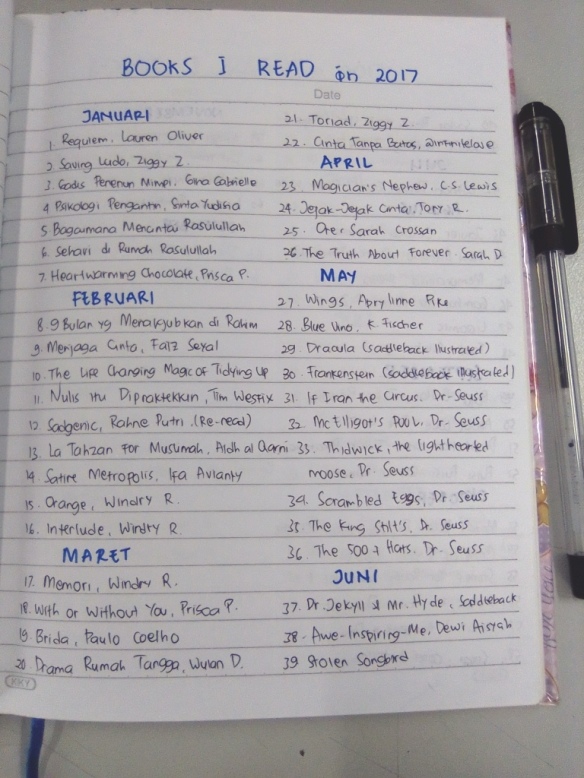 BOOKS I READ in 2017
Date
JANUARI
1. Requiem. Lauren Oliver
2 Saving Ludo, Ziggy Z.
3. Gadis Penenun Mimpi, Gina Gabrielle
4 Psikologi Pengantin, Sinta Yudisia
5 Bagaimana Mencintai Rasulullah
6. Sehari di Rumah Rasulullah
7. Heartwarming Chocolate, Prisca P.
FEBRUARI
8. 9 Bulan yg Menakjubkan di Rahim
9. Menjaga Cinta, Faiz Seyal
10. The Life Changing Magic of Tidying Up
11. Nulis itu Dipraktekkin, Tim Westfix
12 Sadgenic, Rahne Putri. (Re-read)
13. La Tahzan For Musumah, Aidh al Qarni
14. Satire Metropolis, Ifa Avianty
15. Orange, Windry R.
16. Interlude, Windry R
MARET
17. Memori, Windry R.
18. With or Without You, Prisca P.
19. Brida, Paulo Coelho
20. Drama Rumah Tangga, Wulan D.
KKY
21. Toriad, Ziggy Z.
22. Cinta Tanpa Batas, @infinitelove
APRIL
23. Magician's Nephew, C.S. Lewis
24. Jejak-Jejak Cinta, Tory, R.
25. Ore Sarah Crossan
26. The Truth About Forever. Sarah D.
MAY
27. Wings, Aprylinne Pike
28. Blue Uno, K Fischer
29. Dracula (Saddleback Ilustrated)
30. Frankenstein (Saddleback Illustrated)
31 If I ran the Circus. Dr-Seuss
32. McElligot's POOL, Dr. Seuss
33. Thidwick, the lighthearted
moose, Dr. Seuss
34. Scrambled Eggs, Dr. Seuss
35. The King Stilt's, Dr. Seuss
36. The 500+ Hats. Dr. Seuss
JUNI
37. Dr. Jekyll & Mr. Hyde, Saddleback
38. Awe-Inspiring-Me, Dewi Aisyah
39 Stolen Songbird